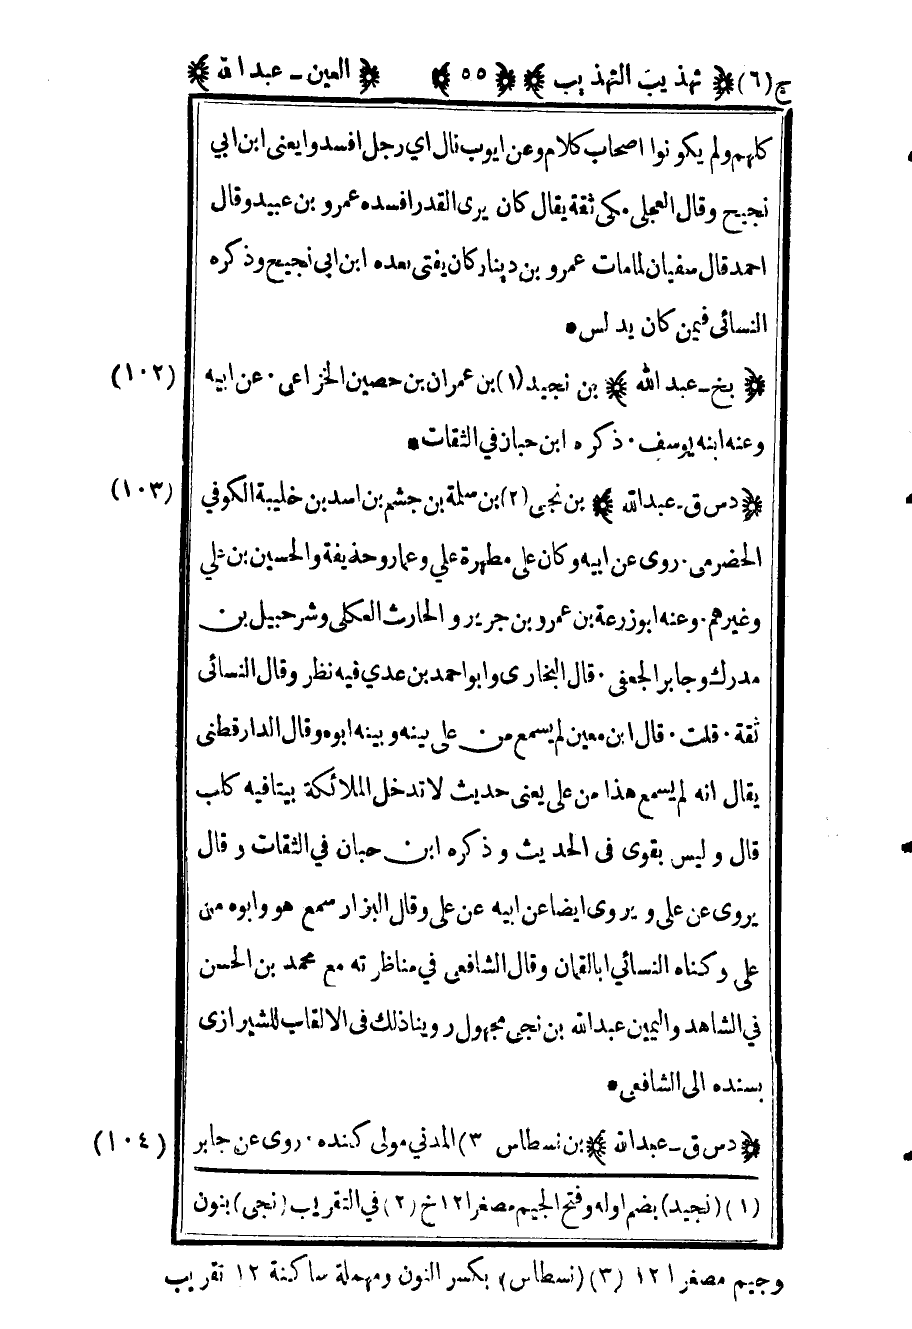 ج(٦) ﴿ تهذيب التهذيب ﴾ ﴿ ٥٥ ﴾ ﴿ العين - عبد الله ﴾
كلهم ولم يكونوا اصحاب كلام وعن ايوب قال اي رجل افسدوا يعنى ابن ابي
نجيح وقال العجلى ٠ مكى ثقة يقال كان يرى القدر افسده عمرو بن عبيد وقال
احمد قال سفيان لما مات عمرو بن دينار كان يفتى بعده ابن ابي نجيح وذكره
النسائى فيمن كان يدلس •
﴿ بخ - عبد الله ﴾ بن نجيد (١) بن عمران بن حصين الخزاعى ٠ عن ابيه (١٠٢)
وعنه ابنه يوسف ٠ ذكره ابن حبان في الثقات •
﴿ دس ق - عبد الله ﴾ بن نجى (٢) بن سلمة بن جشم بن اسد بن خليبة الكوفي (١٠٣)
الحضرمى ٠ روى عن ابيه وكان على مطهرة علي وعمار وحذيفة والحسين بن علي
وغيرهم ٠ وعنه ابو زرعة بن عمرو بن جرير و الحارث العكلى وشرحبيل بن
مدرك وجابر الجعفى ٠ قال البخارى وابو احمد بن عدي فيه نظر وقال النسائى
ثقة ٠ قلت ٠ قال ابن معين لم يسمع من على بينه وبينه ابوه وقال الدارقطنى
يقال انه لم يسمع هذا من على يعنى حديث لا تدخل الملائكة بيتا فيه كلب
قال و ليس بقوى فى الحديث و ذكره ابن حبان في الثقات و قال
يروى عن على و يروى ايضا عن ابيه عن على وقال البزار سمع هو وابوه من
على و كناه النسائي ابا لقمان وقال الشافعى في مناظرته مع محمد بن الحسن
في الشاهد واليمين عبد الله بن نجى مجهول روينا ذلك فى الالقاب للشيرازى
بسنده الى الشافعى •
﴿ دس ق - عبد الله ﴾ بن نسطاس ٣) المدني مولى كنده ٠ روى عن جابر (١٠٤)
(١) (نجيد) بضم اوله وفتح الجيم مصغرا ١٢ خ (٢) في التقريب (نجى) بنون
وجيم مصغرا ١٢ (٣) (نسطاس) بكسر النون ومهملة ساكنة ١٢ تقريب